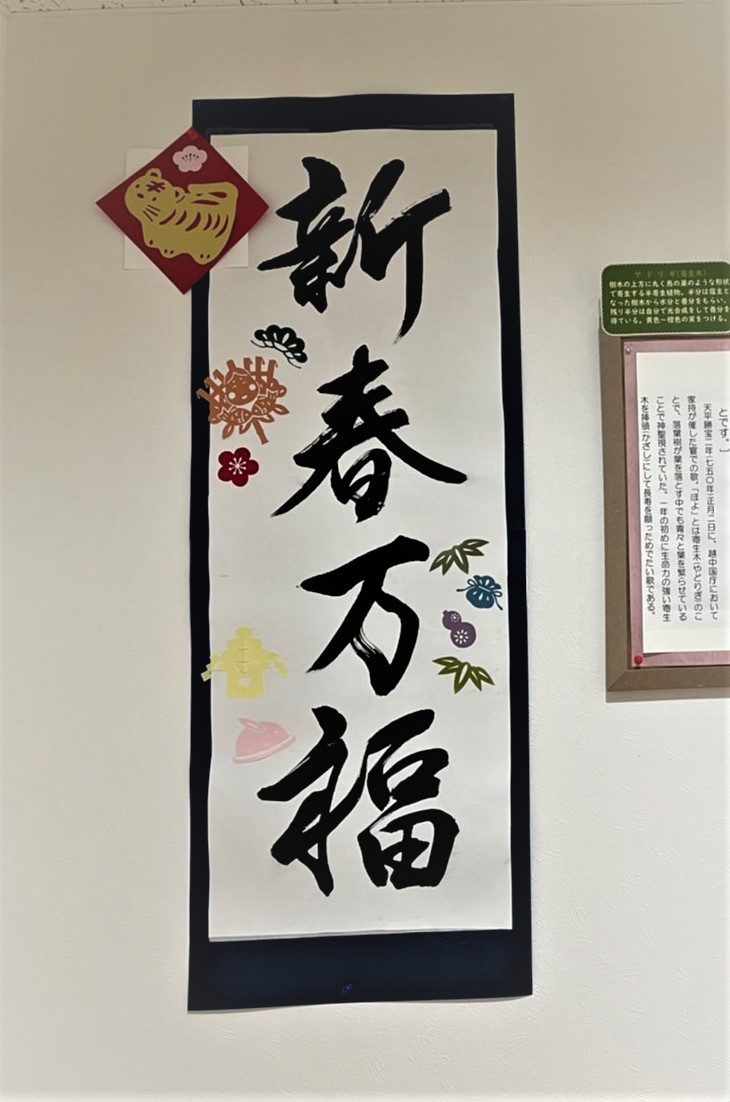 新春万福
ヤドリギ(寄生木)
樹木の上方に丸く鳥の巣のような形状
で寄生する半寄生植物。半分は宿主と
なった樹木から水分と養分をもらい、
残り半分は自分で光合成をして養分を
得ている。黄色～橙色の実をつける。
とです。」
天平勝宝二年(七五〇年)正月二日に、越中国庁において
家持が催した宴での歌。「ほよ」とは寄生木(やどりぎ)のこ
とで、落葉樹が葉を落とす中でも青々と葉を繁らせている
ことで神聖視されていた。一年の初めに生命力の強い寄生
木を挿頭(かざし)にして長寿を願っためでたい歌である。